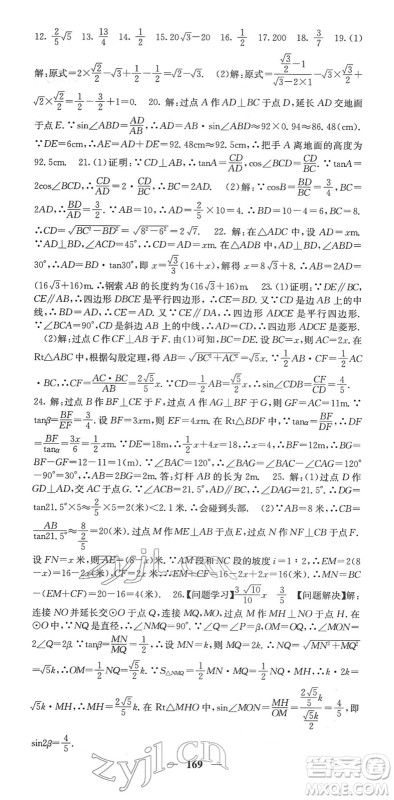 12. 2/5√5 13. 13/4 14. 1/2 15.20√3-20 16. 1/2 17.200 18. 3/7 19.(1)
解:原式=2×√2/2-√3+1/2×2=√2-√3+1. (2)解:原式=
+√2×√2/2=1/2-3/2+1=0. 20. 解:过点 A 作 AD⊥BC 于点 D,延长 AD 交地面
于点 E,∵sin∠ABD=AD/AB,∴AD=AB·sin∠ABD≈92×0.94=86.48(cm).
∵DE=6cm,∴AE=AD+DE=92.48≈92.5cm,∴把手 A 离地面的高度为
92.5cm. 21.(1)证明:∵CD⊥AB,∴tanA=CD/AD,cos∠BCD=CD/BC,∵tanA=
2cos∠BCD,∴CD/AD=2·CD/BC,∴BC=2AD. (2)解:∵cosB=BD/BC=3/4,BC=2AD,
∴BD/AD=3/2.∵AB=10,∴AD=2/5×10=4,BD=10-4=6,∴BC=8,
∴CD=√BC²-BD²=√8²-6²=2√7. 22. 解:在△ADC 中,设 AD=xm.
∵AD⊥BD,∠ACD=45°,∴CD=AD=xm.在△ADB 中,AD⊥BD,∠ABD=
30°,∴AD=BD·tan30°,即 x=√3/3(16+x),解得 x=8√3+8,∴AB=2AD=
(16√3+16)m,∴钢索 AB 的长度约为(16√3+16)m. 23.(1)证明:∵DE∥BC,
DF=EF,BE=CE,∴四边形 DBCE 是平行四边形,∴CD 是 AB 边上的中线,
∴BD=AD,∴AD=CE.∵CE∥DA,∴四边形 ADCE 是平行四边形.
∵∠BCA=90°,CD 是斜边 AB 上的中线,∴AD=CD,∴四边形 ADCE 是菱形.
(2)解:过点 C 作 CF⊥AB 于点 F.由(1)可知,BC=DE,设 BC=x,则 AC=2x.在
Rt△ABC 中,根据勾股定理,得 AB=√BC²+AC²=√5x.∵1/2AB·CF=1/2AC
·BC,∴CF=AC·BC/AB=2√5/5x.∵CD=1/2AB=√5/2x,∴sin∠CDB=CF/CD=4/5.
24. 解:过点 B 作 BF⊥CE 于点 F,过点 A 作 AG⊥BF 于点 G,则 FG=AC=11m.由
题意得∠BDE=α,tanβ=3/4.设 BF=3xm,则 EF=4xm.在 Rt△BDF 中,∵tan∠BDF=
BF/DF,∴DF=BF/tanα=3x/6=x/2(m).∵DE=18m,∴1/2x+4x=18,∴x=4,∴BF=12m,∴BG=
BF-GF=12-11=1(m).∵∠BAC=120°,∴∠BAG=∠BAC-∠CAG=120°
-90°=30°,∴AB=2BG=2m.答:灯杆 AB 的长为2m. 25. 解:(1)过点 D 作
GD⊥AD,交 AB 于点 G,∵∠A=21.5°,AD=5米,∴在 Rt△ADG 中,GD=AD·
tan21.5°≈5×2/5=2(米).∵2米<2.26米,∴会碰到头部. (2)∵AB=8米,∴CB=
AB/tan21.5°≈8/(2/5)=20(米).过点 M 作 ME⊥AB 于点 E,过点 N 作 NF⊥CB 于点 F,
设 FN=x米,则 AE=(8-x)米.∵AM段和NC段的坡度 i=1∶2,∴EM=2(8
-x)=(16-2x)米,CF=2x米,∴EM+CF=16-2x+2x=16(米),∴MN=BC-
(EM+CF)=20-16=4(米). 26.【问题学习】3√10/10x 3/5 【问题解决】解:
连接 NO 并延长交⊙O 于点 Q,连接 MQ、MO,过点 M 作 MH⊥NO 于点 H.在
⊙O 中,∠NMQ=90°.∵∠Q=∠P=β,OM=ON,∴∠MON=2∠Q=
2β.∵tanβ=MN/MQ=1/2,∴设 MN=k,则 MQ=2k,∴NQ=√MN²+MQ²=
√5k,∴OM=1/2NQ=√5/2k.∵S△NMQ=1/2MN·MQ=1/2NQ·MH,∴k·2k=
√5k·MH,∴MH=2√5/5k.在 Rt△MHO 中,sin2β=sin∠MON=MH/OM=4/5,即
sin2β=4/5.
169
zyjl.cn
zyjl.cn
答案圈